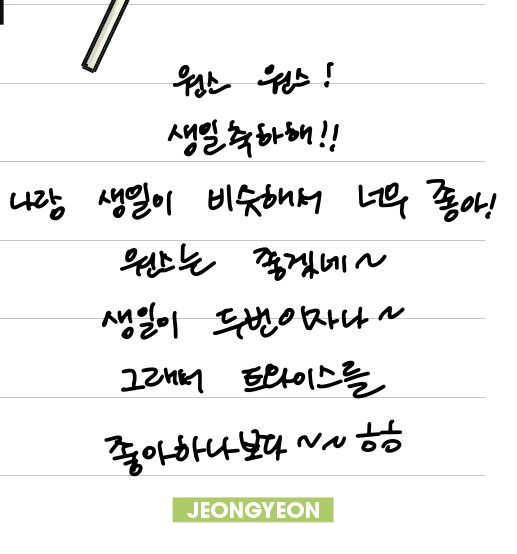 원스 원스!
생일축하해!!
나랑 생일이 비슷해서 너무 좋아!
원스는 좋겠네~
생일이 두번이자나~
그래서 트와이스를
좋아하나보다~~ㅎㅎ
JEONGYEON